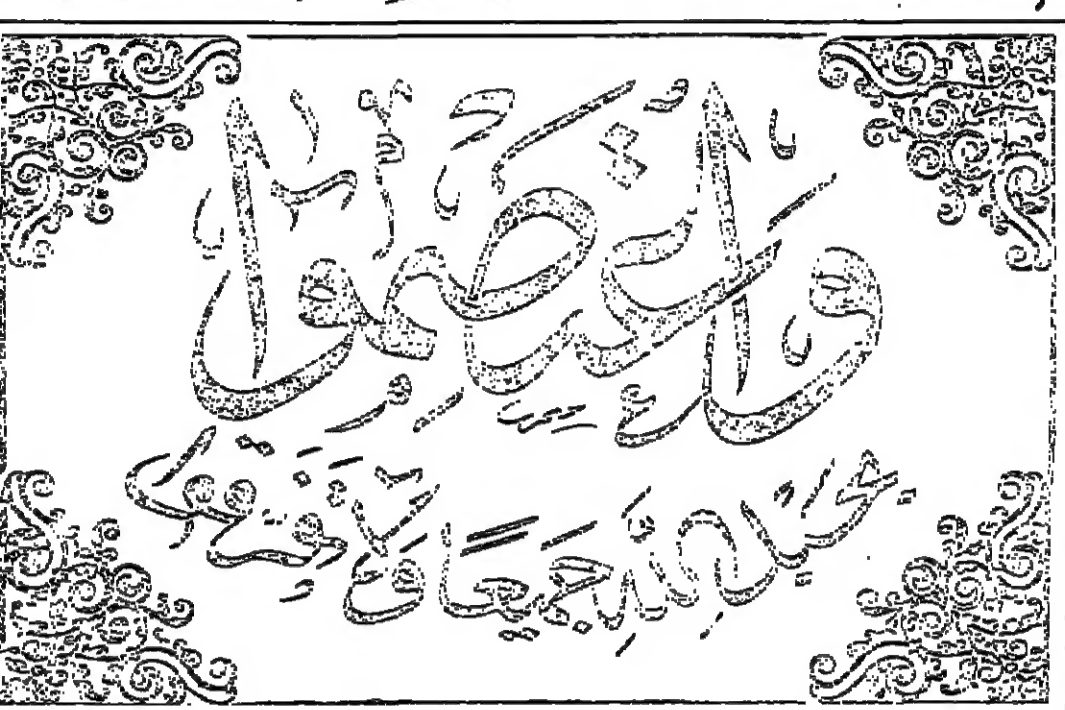 وَاعْتَصِمُوا
بِحَبْلِ اللَّهِ جَمِيعًا وَلَا تَفَرَّقُوا